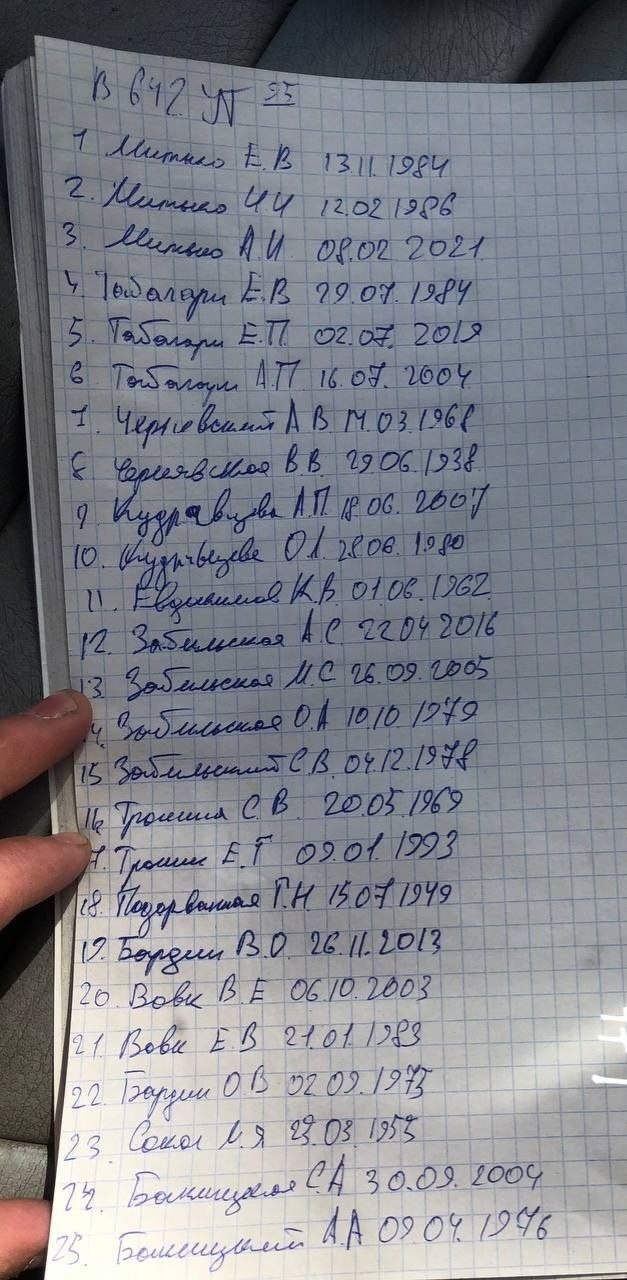 В 642 УТ 95
1 Митько Е.В 13.11.1984
2. Митько И И 12.02 1986
3. Митько А.И 08.02 2021
4. Табагари Е.В 29.07. 1984
5. Табагари Е.П. 02.07. 2019
6 Табагари А.П 16.07. 2004
7. Чернявский А В 14.03.1968
8 Чернявская В В. 29 06.1938
9 Кудрявцева А.П. 18.06. 2007
10. Кудрявцева О.А. 28.06. 1980
11. Евдокимов К.В. 01.06.1962
12. Забильская А С. 22.04 2016
13. Забильская М.С 26.09.2005
14. Забильская О.А 10.10 1979
15 Забильский С.В. 04.12.1978
16 Трошина С.В. 20.05.1969
17. Трошин Е.Г 09.01.1993
18. Подорванная Г.Н. 15.07 1949
19. Бардин В.О. 26.11.2013
20 Вовк В.Е 06.10.2003
21. Вовк Е.В 21.01.1983
22. Бардин О В 02 09.1975
23 Сокол М.Я 29.03 1955
24. Бакицкая С.А 30.09. 2004
25. Бакицкий А.А 09.04. 1976